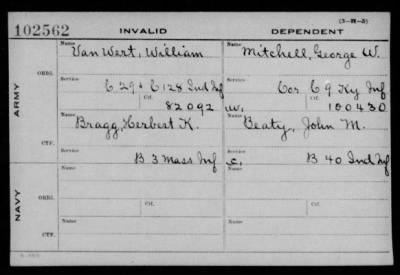 (3-H-5)
102562 INVALID DEPENDENT
ARMY
ORIG.
Name Van Wert, William
Name Mitchell, George W.
Service C 29 & C 128 Ind Inf
Service Cor C 9 Ky Inf
Ctf. 82092
W. Ctf. 190430
CTF.
Name Bragg, Herbert K.
Name Beaty, John M.
Service B 3 Mass Inf
C. Service B 40 Ind Inf
NAVY
ORIG.
Name
Name
Service
Service
Ctf.
Ctf.
CTF.
Name
Name